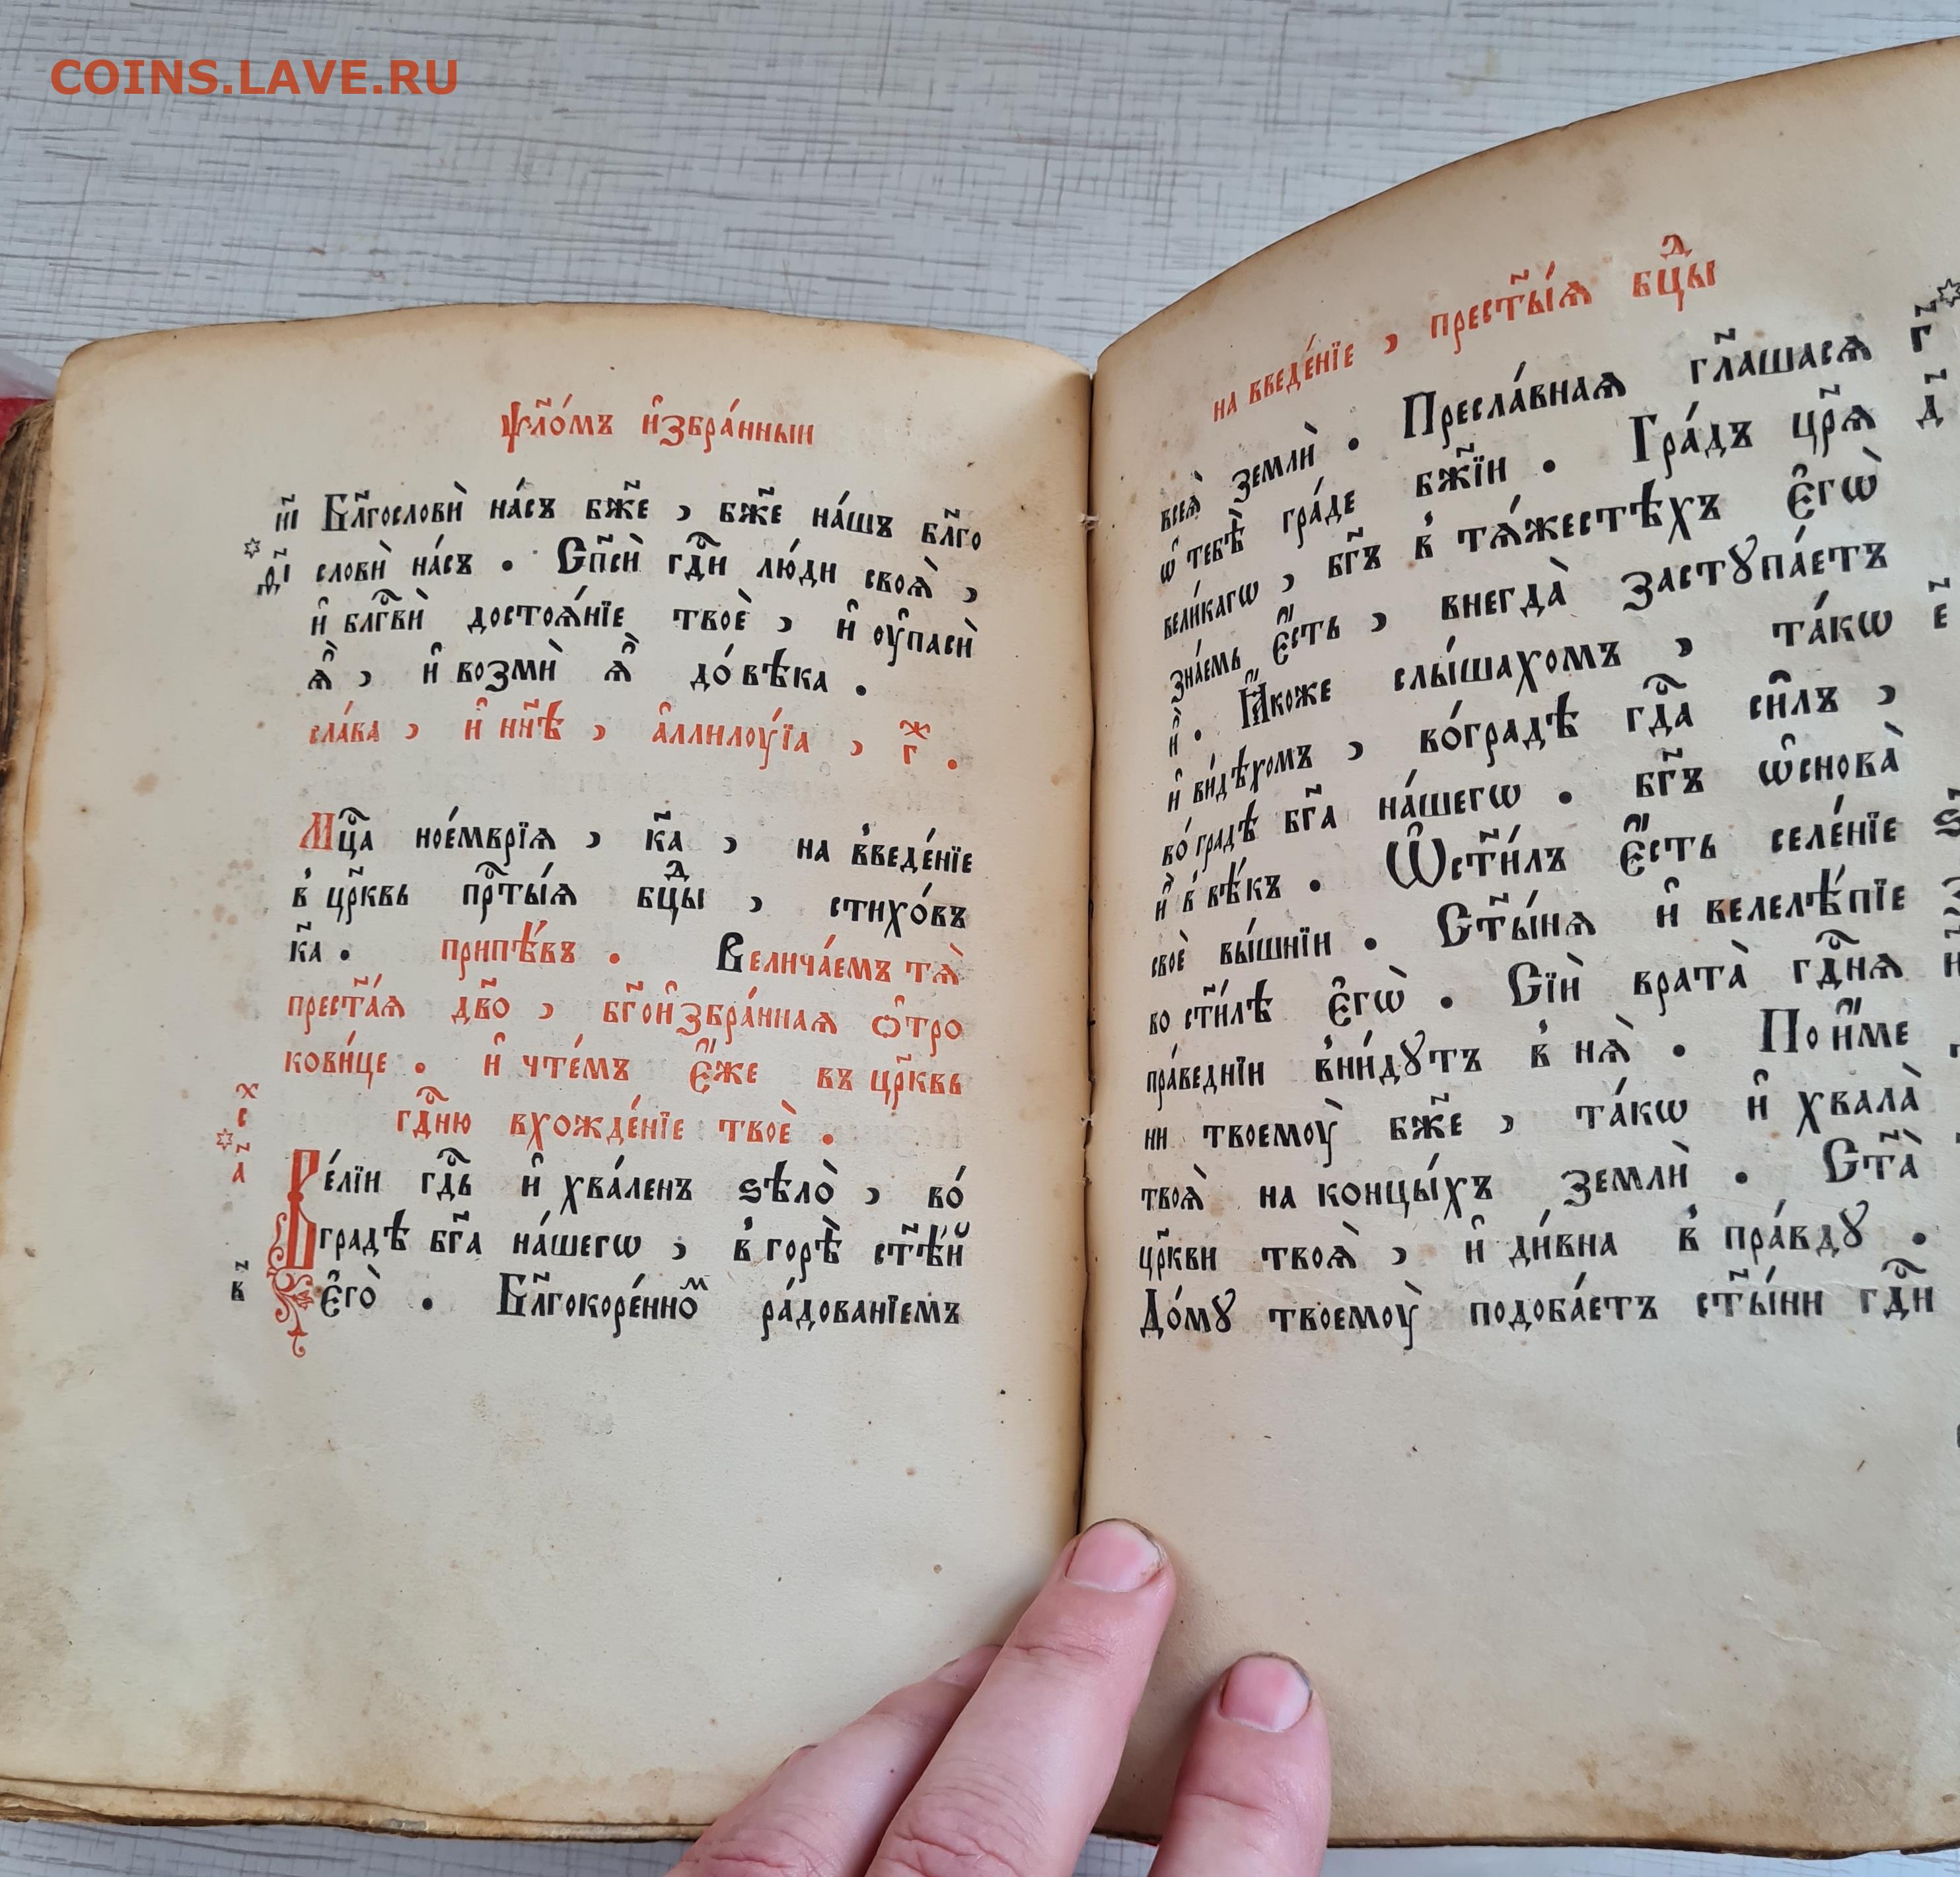 COINS.LAVE.RU
ѱл҃о́мъ и҆збра́нныи
н҃і Бл҃гословѝ на́съ бж҃е , бж҃е на́шъ бл҃го
словѝ на́съ . Сп҃сѝ гдⷭ҇и лю́ди своѧ̀ ,
и҆ блгⷭ҇вѝ достоѧ́нїе твоѐ , и҆ оу҆пасѝ
ѧ҆̀ , и҆ возмѝ ѧ҆̀ до́вѣка .
сла́ва , и҆ нн҃ѣ , а҆ллилоу́їа , гⷤ .
Мцⷭ҇а ное́мврїѧ , к҃а , на в̾веде́нїе
в̾ цр҃квь прⷭ҇ты́ѧ бцⷣы , стихо́въ
к҃а . припѣ́въ . Велича́емъ тѧ̀
прест҃а́ѧ дв҃о , бг҃ои҆збра́ннаѧ ѻ҆тро
кови́це . и҆ чте́мъ є҆́же въ цр҃квь
гдⷭ҇ню вхожде́нїе твоѐ .
х
с
а҃
Ве́лїи гдⷭ҇ь и҆ хва́ленъ ѕѣлѡ̀ , во́
градѣ бг҃а на́шегѡ , в̾ горѣ̀ ст҃ѣ́й
в҃ є҆го̀ . Бл҃гокоре́нноⷨ ра́дованїемъ
на введе́нїе , прест҃ы́ѧ бцⷣы
всеѧ̀ землѝ . Пресла́внаѧ гл҃ашасѧ г҃
ѡ҆ тебѣ̀ гра́де бж҃їи . Гра́дъ цр҃ѧ д҃
вели́кагѡ , бг҃ъ в̾ тѧ́жестѣхъ є҆гѡ̀
зна́емь є҆́сть , внегда̀ застꙋпа́етъ
и҆̀ . Ꙗ҆́коже слы́шахомъ , та́кѡ е҃
и҆ ви́дѣхомъ , во́градѣ гдⷭ҇а си́лъ ,
во́градѣ бг҃а на́шегѡ . бг҃ъ ѡ҆снова̀
и҆̀ в̾ вѣ́къ . Ѡ҆ст҃и́лъ є҆́сть селе́нїе ѕ
своѐ вы́шнїи . Ст҃ы́нѧ и҆ велелѣ́пїе
во ст҃и́лѣ є҆гѡ̀ . Сїѝ врата̀ гдⷭ҇нѧ
пра́веднїи вни́дꙋтъ в̾ нѧ̀ . По и҆́ме
ни твоемоу̀ бж҃е , та́кѡ и҆ хвала̀
твоѧ̀ на концы́хъ землѝ . Ст҃а̀
цр҃кви твоѧ̀ , и҆ ди́вна в̾ пра́вдꙋ .
До́мꙋ твоемоу̀ подоба́етъ ст҃ы́ни гдⷭ҇и